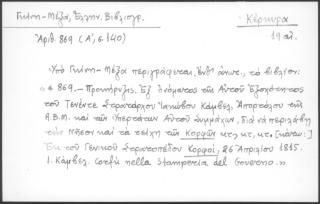 Γκίνη-Μέξα, Ἑλλην. Βιβλιογρ.
Κέρκυρα
Ἀριθ. 869 (Α', σ. 140)
19 αἰ.
Ὑπὸ Γκίνη-Μέξα περιγράφεται, ἔνθ' ἀνωτ., τὸ βιβλίον:
« 869.- Προκήρυξις. Ἐξ ὀνόματος τῆς Αὐτοῦ Ἐξοχότητος
τοῦ Γενέντε Στρατάρχου Ἰακώβου Κάμβελ, Ἁρμοστοῦ τῆς
Α.Β.Μ. καὶ τῶν Ὑπερτάτων Αὐτοῦ Συμμάχων, διὰ νὰ περιλάβῃ
τὴν Νῆσον καὶ τὰ τείχη τῶν Κορφῶν κτ, κτ, κτ. [κάτω:]
Ἐκ τοῦ Γενικοῦ Στρατοπέδου Κορφοί, 26 Ἀπριλίου 1815.
Ι. Κάμβελ. Corfù nella Stamperia del Governo.»